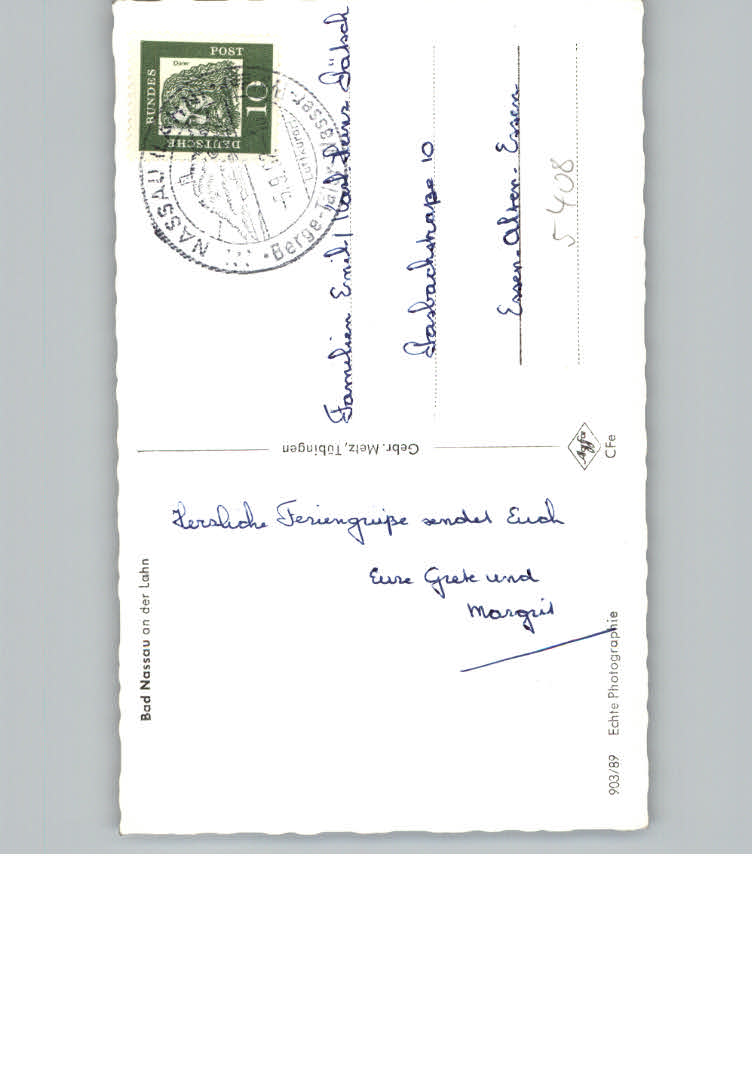 Bad Nassau an der Lahn
Herzliche Feriengrüße sendet Euch
Eure Grete und
Margrit
903/89 Echte Photographie
Gebr. Metz, Tübingen
Agfa
CFe
DEUTSCHE
BUNDES
POST
10
Dürer
NASSAU
Berge-Täler-Wässer-
Familien Emil / Karl Heinz
10
Essen-Alten-Essen
5408